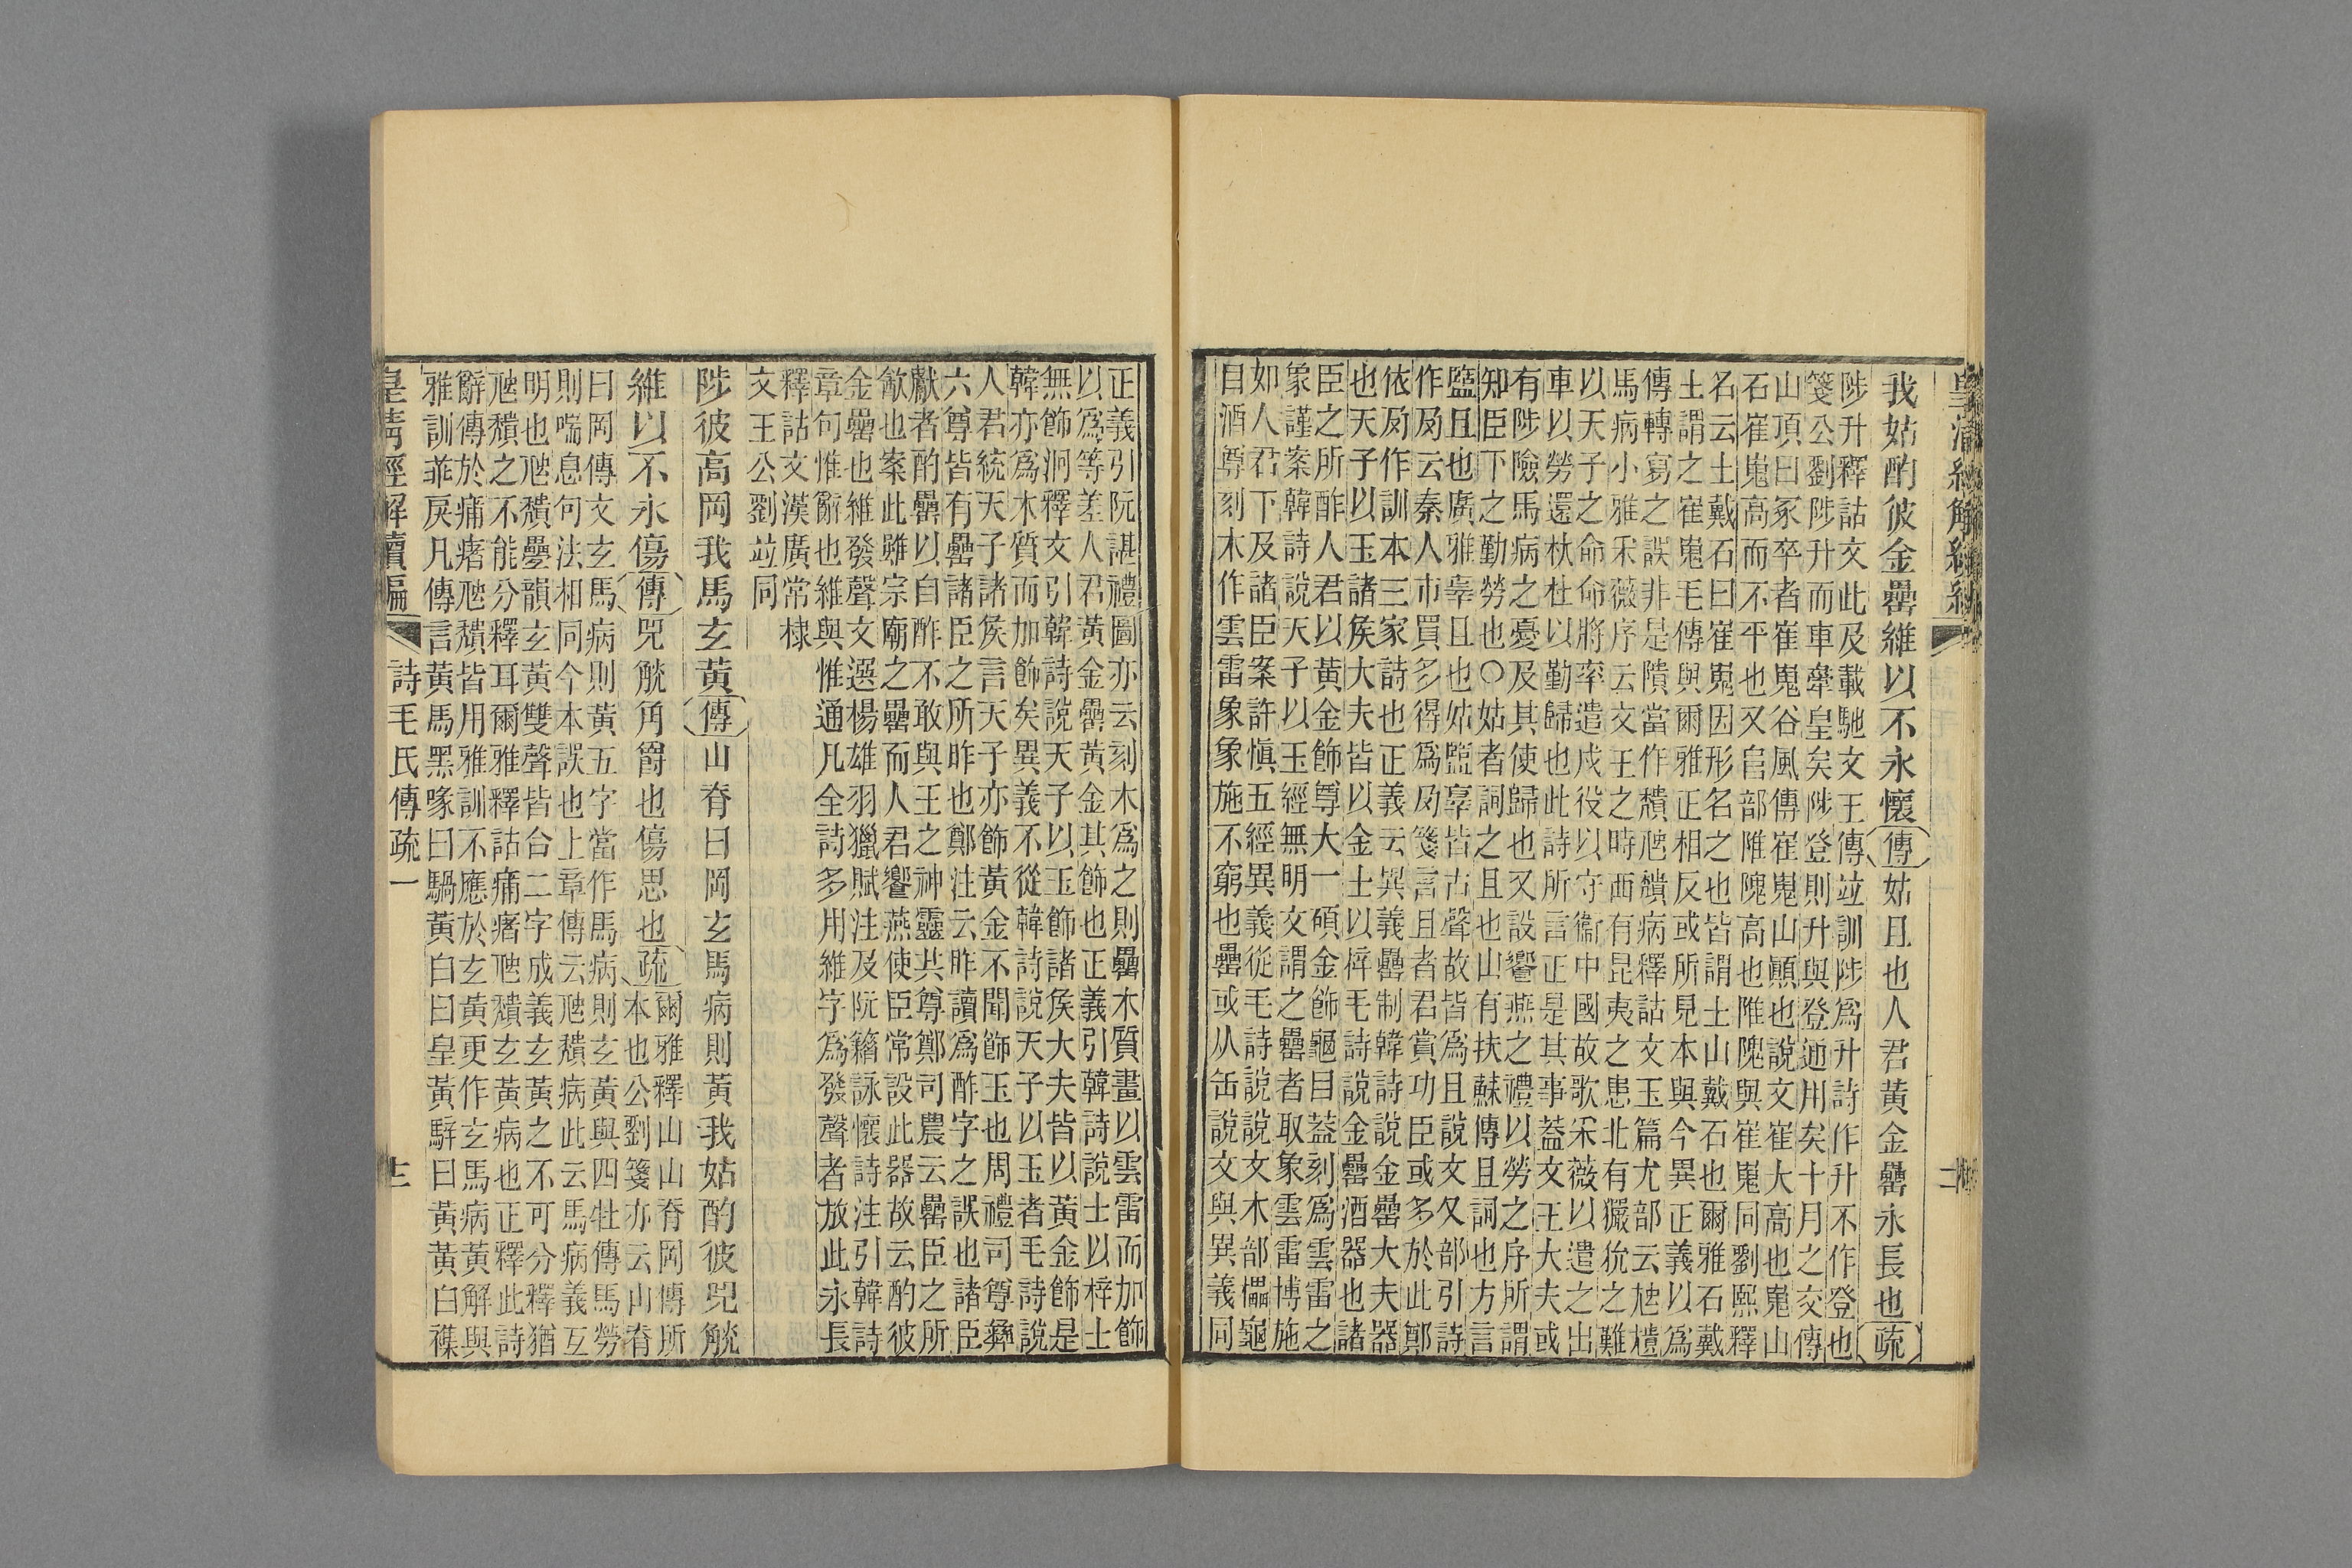 我姑酌彼金罍維以不永懷傳姑且也人君黃金罍永長也疏
陟升釋詁文此及載馳文王傳竝訓陟爲升詩作升不作登也
箋公劉陟升而車舝皇矣陟登則升與登通用矣十月之交傳
山頂曰冢卒者崔嵬谷風傳崔嵬山顚也說文崔大高也嵬山
石崔嵬高而不平也又𨸏部陮隗高也陮隗與崔嵬同劉熙釋
名云土戴石曰崔嵬因形名之也皆謂土山戴石也爾雅石戴
土謂之崔嵬毛傳與爾雅正相反或所見本與今異正義以爲
傳轉寫之誤非是隤當作穨虺穨病釋詁文玉篇尤部云尵𡯥
馬病小雅采薇序云文王之時西有昆夷之患北有玁狁之難
以天子之命命將率遣戍役以守衞中國故歌采薇以遣之出
車以勞還杕杜以勤歸也此詩所言正是其事葢文王大夫或
有陟險馬病之憂及其使歸也又設饗燕之禮以勞之序所謂
知臣下之勤勞也〇姑者詞之且也山有扶蘇傳且詞也方言
盬且也廣雅辜且也姑盬辜皆古聲故皆爲且說文又部引詩
作夃云秦人市買多得爲夃箋言且者君賞功臣或多於此鄭
依夃作訓本三家詩也正義云異義罍制韓詩說金罍大夫器
也天子以玉諸矦大夫皆以金士以梓毛詩說金罍酒器也諸
臣之所酢人君以黃金飾尊大一碩金飾龜目葢刻爲雲雷之
象謹案韓詩說天子以玉經無明文謂之罍者取象雲雷博施
如人君下及諸臣案許愼五經異義從毛詩說說文木部櫑龜
目酒尊刻木作雲雷象象施不窮也罍或从缶說文與異義同
正義引阮諶禮圖亦云刻木爲之則罍木質畫以雲雷而加飾
以爲等差人君黃金罍黃金其飾也正義引韓詩說士以梓士
無飾泂釋文引韓詩說天子以玉飾諸矦大夫皆以黃金飾是
韓亦爲木質而加飾矣異義不從韓詩說天子以玉者毛詩說
人君統天子諸矦言天子亦飾黃金不聞飾玉也周禮司尊彝
六尊皆有罍諸臣之所昨也鄭注云昨讀爲酢字之誤也諸臣
獻者酌罍以自酢不敢與王之神靈共尊鄭司農云罍臣之所
歙也案此雖宗廟之罍而人君饗燕使臣常設此器故云酌彼
金罍也維發聲文選楊雄羽獵賦注及阮籍詠懷詩注引韓詩
章句惟辭也維與惟通凡全詩多用維字爲發聲者放此永長
釋詁文漢廣常棣
文王公劉竝同
陟彼高岡我馬玄黃傳山脊曰岡玄馬病則黃我姑酌彼兕觥
維以不永傷傳兕觥角爵也傷思也疏
爾雅釋山山脊岡傳所
本也公劉箋亦云山脊
曰岡傳文玄馬病則黃五字當作馬病則玄黃與四牡傳馬勞
則喘息句法相同今本誤也上章傳云虺穨病此云馬病義互
明也虺穨疊韻玄黃雙聲皆合二字成義玄黃之不可分釋猶
虺穨之不能分釋耳爾雅釋詁痡瘏虺穨玄黃病也正釋此詩
辭傳於痡瘏虺穨皆用雅訓不應於玄黃更作玄馬病黃解與
雅訓乖戾凡傳言黃馬黑喙曰騧黃白曰皇黃騂曰黃黃白襍
皇淸經解續編
詩毛氏傳疏一